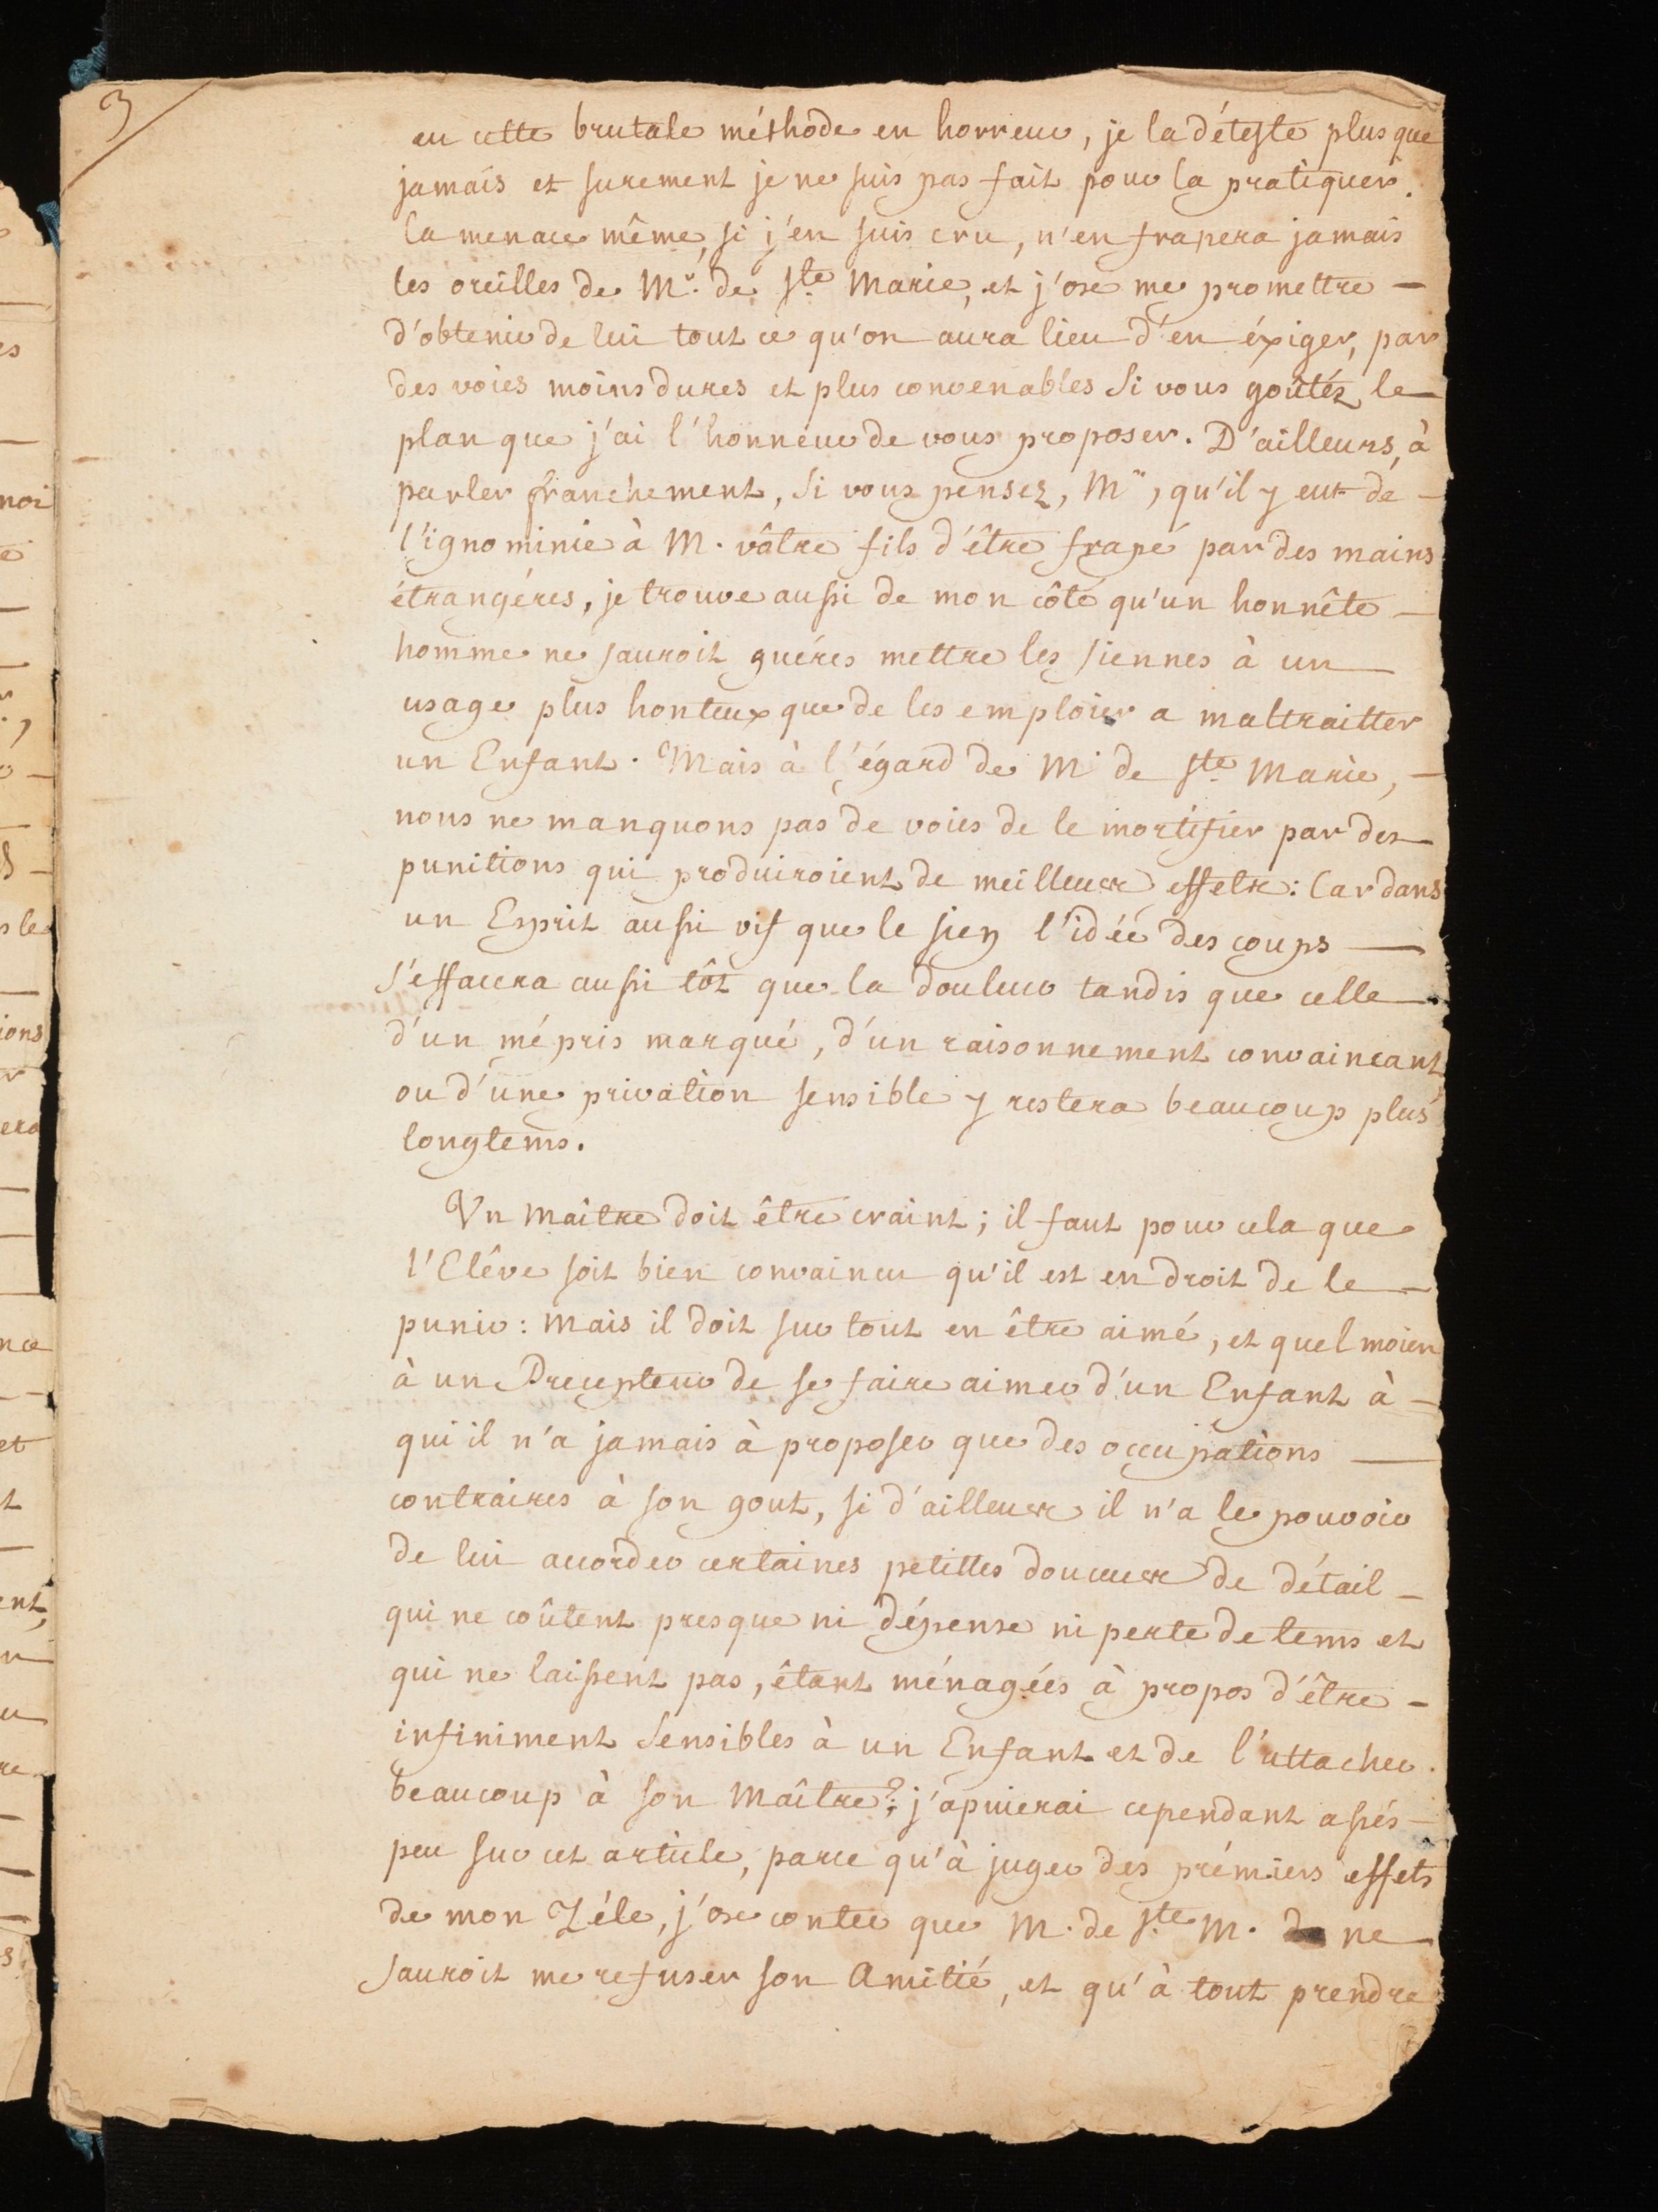 3
eu cette brutale méthode en horreur, je la déteste plus que
jamais et surement je ne suis pas fait pour la pratiquer.
la menace même, si j'en suis cru, n'en frapera jamais
les oreilles de Mr. de Ste Marie, et j'ose me promettre —
d'obtenir de lui tout ce qu'on aura lieu d'en éxiger, par
des voies moins dures et plus convenables Si vous goûtéz le
plan que j'ai l'honneur de vous proposer. D'ailleurs, à
parler franchement, Si vous pensez, Mr, qu'il y eut de —
l'ignominie à M. vôtre fils d'être frapé par des mains
étrangéres, je trouve aussi de mon côté qu'un honnête —
homme ne sauroit guéres mettre les siennes à un
usage plus honteux que de les emploier a maltraitter
un Enfant. Mais à l'égard de Mr de Ste Marie, —
nous ne manquons pas de voies de le mortifier par des
punitions qui produiroient de meilleurs effets: Car dans
un Esprit aussi vif que le sien l'idée des coups —
s'effacera aussi tôt que la douleur tandis que celle
d'un mépris marqué, d'un raisonnement convaincant,
ou d'une privation sensible y restera beaucoup plus
longtems.
Un Maître doit être craint; il faut pour cela que
l'Elêve soit bien convaincu qu'il est en droit de le —
punir: Mais il doit sur tout en être aimé, et quel moien
à un Precepteur de se faire aimer d'un Enfant à —
qui il n'a jamais à proposer que des occupations —
contraires à son gout, si d'ailleurs il n'a le pouvoir
de lui accorder certaines petittes douceurs de détail —
qui ne coûtent presque ni dépense ni perte de tems et
qui ne laissent pas, êtant ménagées à propos d'être —
infiniment Sensibles à un Enfant et de l'attacher
beaucoup à son Maître?; j'apuierai cependant assés —
peu sur cet article, parce qu'à juger des prémiers effets
de mon Zéle, j'ose conter que M. de Ste M. ne
sauroit me refuser son Amitié, et qu'à tout prendre